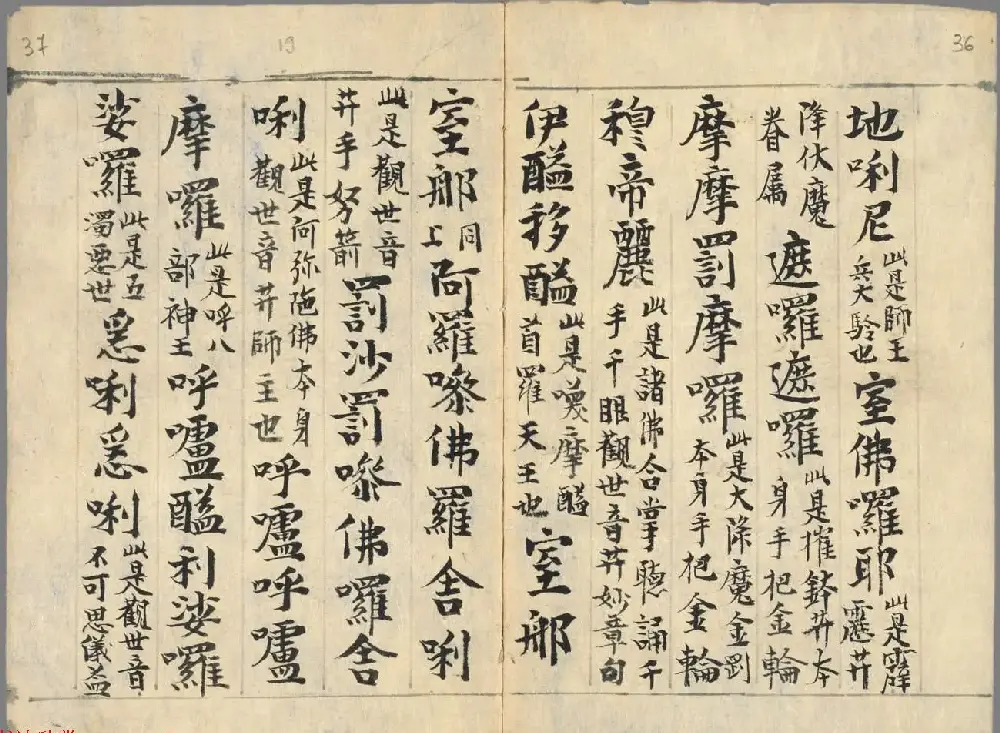 36
地唎尼此是師王兵大驗也室佛囉耶此是霹靂𦬇
降伏魔眷属遮囉遮囉此是摧𦬇本身手把金輪
摩摩罰摩囉此是大降魔金剛本身手把金輪
穆帝麗此是諸佛合掌聴誦千手千眼觀世音𦬇妙章句
伊醯移醯此是嘆摩醯首羅天王也室那
19
37
室那同上阿羅嘇佛羅舍唎
此是觀世音𦬇手努箭罰沙罰嘇佛囉舍
唎此是阿弥陁佛本身觀世音𦬇師主也呼嚧呼嚧
摩囉此是呼八部神王呼嚧醯利娑囉
娑囉此是五濁惡世悉唎悉唎此是觀世音不可思儀盖